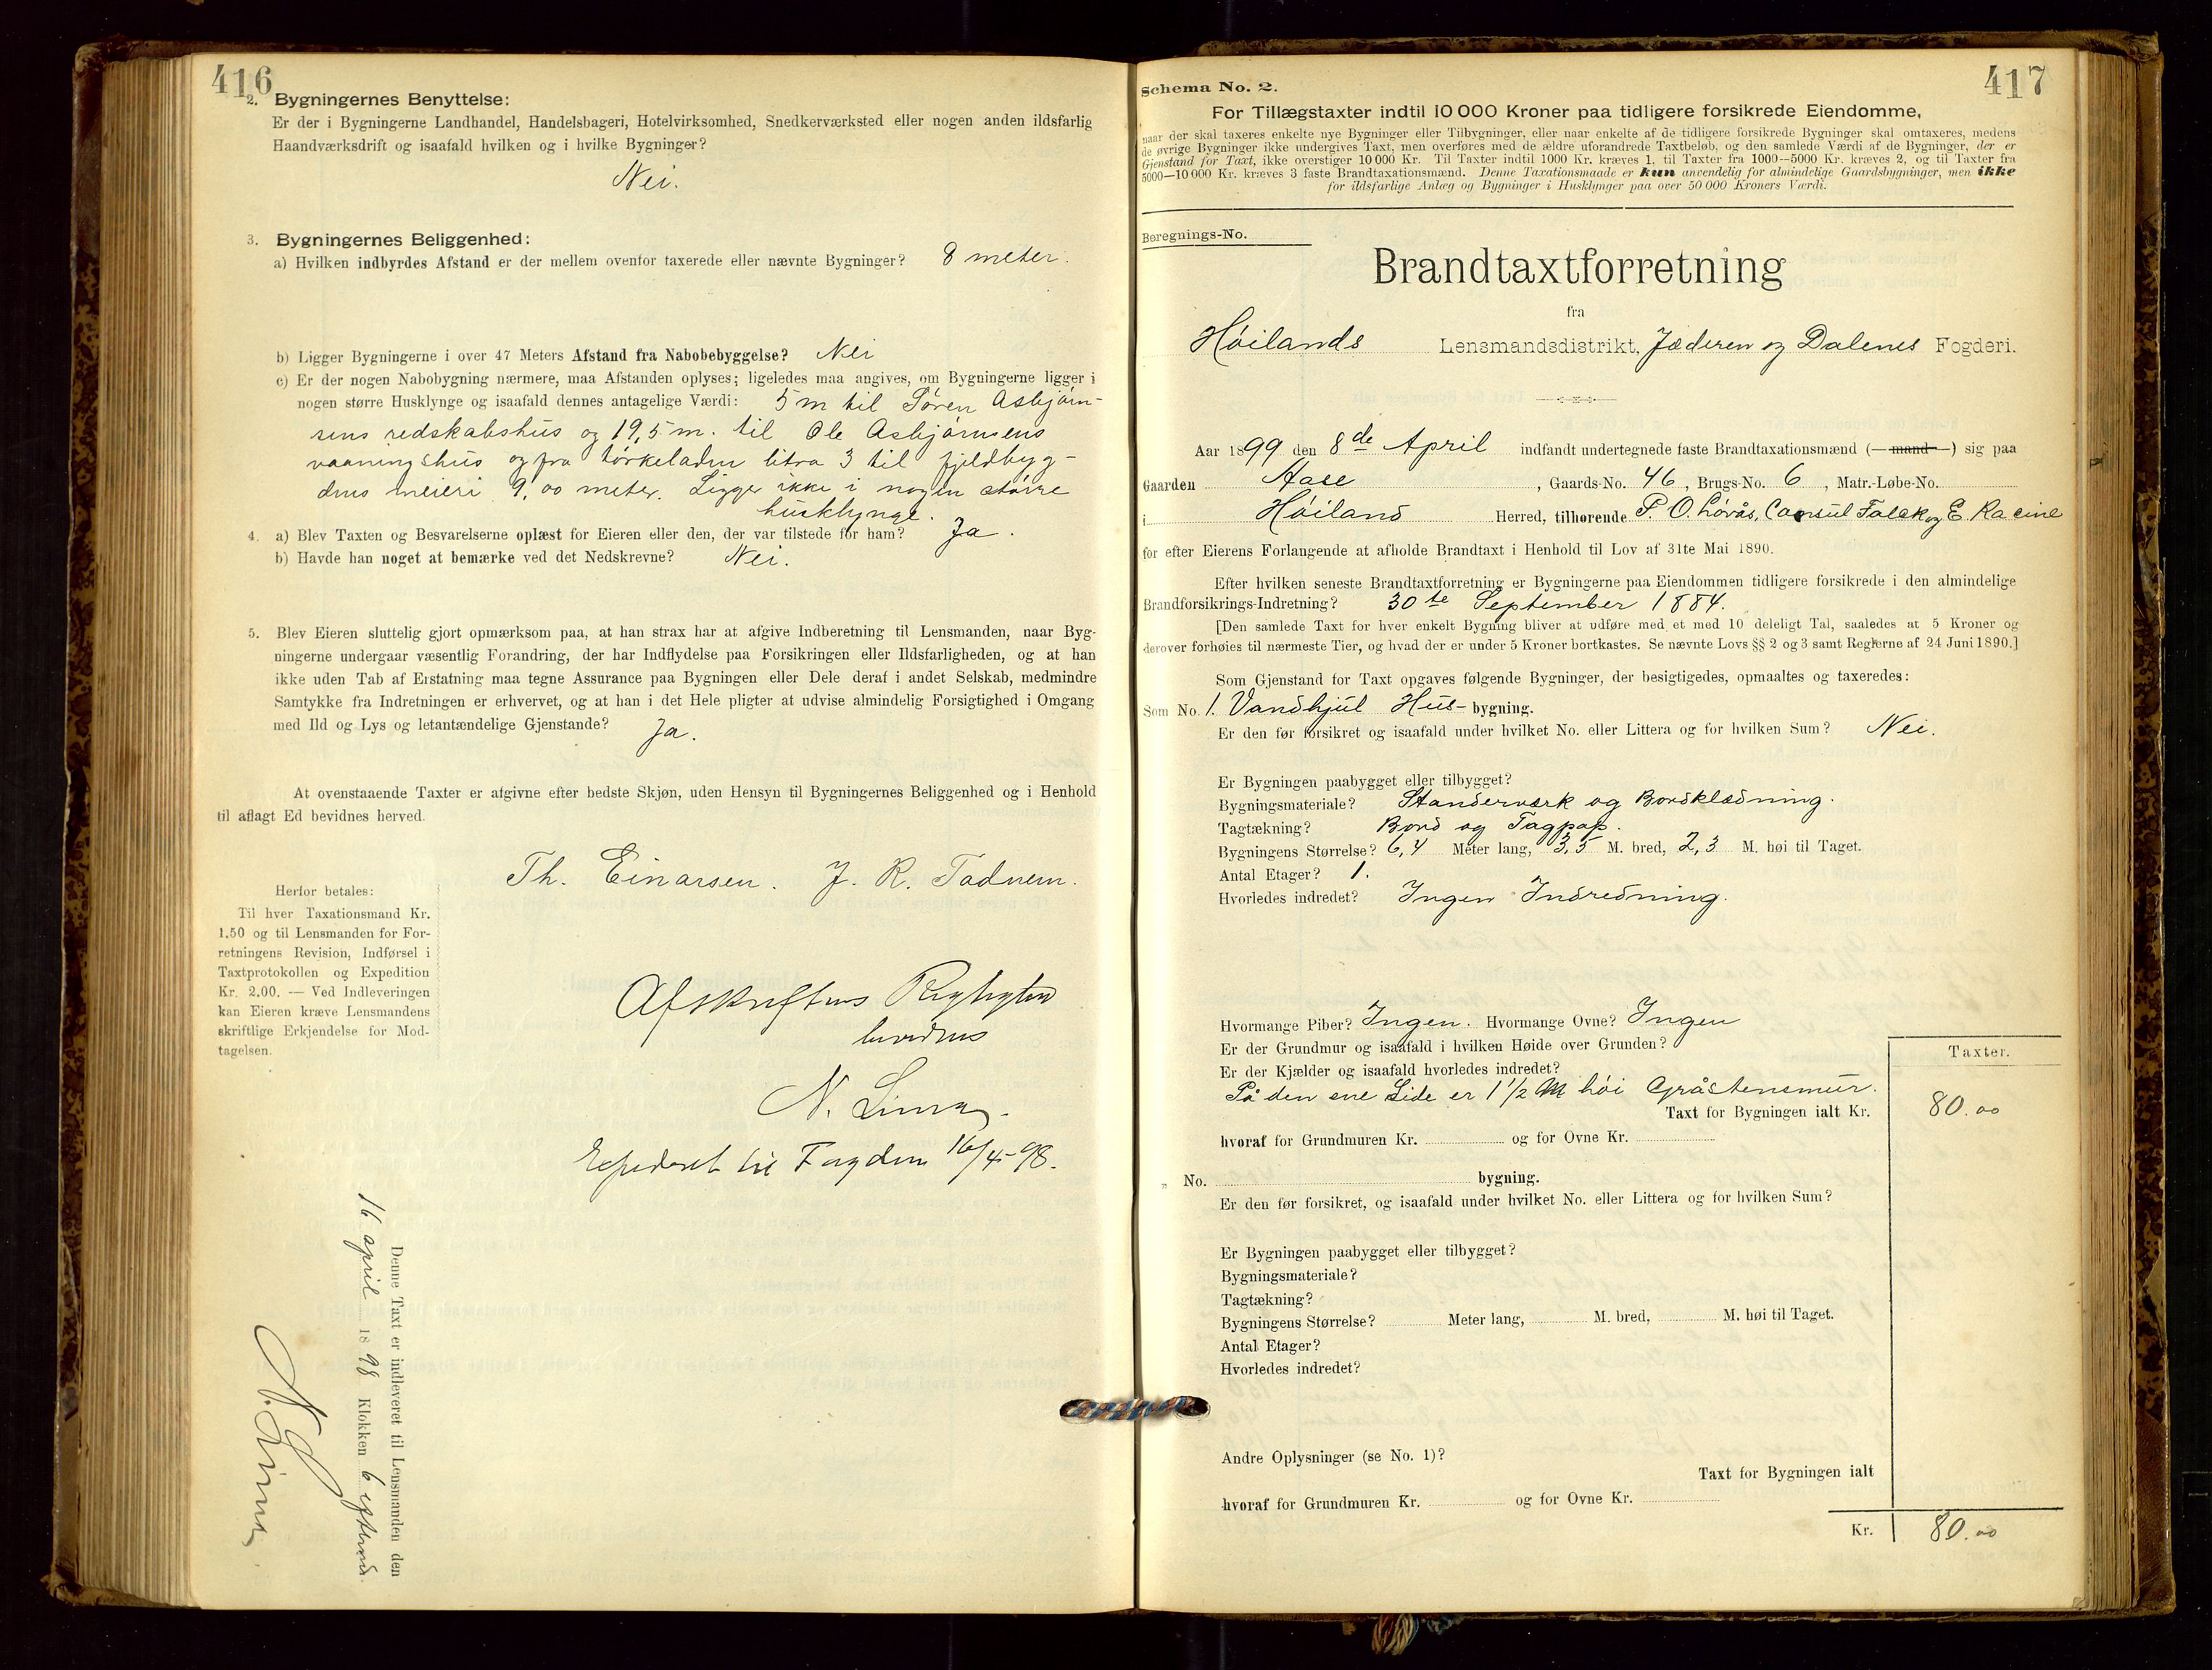 416
2. Bygningernes Benyttelse:
Er der i Bygningerne Landhandel, Handelsbageri, Hotelvirksomhed, Snedkerværksted eller nogen anden ildsfarlig
Haandværksdrift og isaafald hvilken og i hvilke Bygninger?
Nei.
3. Bygningernes Beliggenhed:
a) Hvilken indbyrdes Afstand er der mellem ovenfor taxerede eller nævnte Bygninger? 8 meter.
b) Ligger Bygningerne i over 47 Meters Afstand fra Nabobebyggelse? Nei
c) Er der nogen Nabobygning nærmere, maa Afstanden oplyses; ligeledes maa angives, om Bygningerne ligger i
nogen større Husklynge og isaafald dennes antagelige Værdi: 5 m til Søren Asbjørn-
sens redskabshus og 19,5 m. til Ole Asbjørnsens
vaaningshus og fra tørkeladen litra 3 til fjeldbyg-
dens meieri 9,00 meter. Ligger ikke i nogen større
husklynge.
4. a) Blev Taxten og Besvarelserne oplæst for Eieren eller den, der var tilstede for ham? Ja.
b) Havde han noget at bemærke ved det Nedskrevne? Nei.
5. Blev Eieren sluttelig gjort opmærksom paa, at han strax har at afgive Indberetning til Lensmanden, naar Byg-
ningerne undergaar væsentlig Forandring, der har Indflydelse paa Forsikringen eller Ildsfarligheden, og at han
ikke uden Tab af Erstatning maa tegne Assurance paa Bygningen eller Dele deraf i andet Selskab, medmindre
Samtykke fra Indretningen er erhvervet, og at han i det Hele pligter at udvise almindelig Forsigtighed i Omgang
med Ild og Lys og letantændelige Gjenstande? Ja.
At ovenstaaende Taxter er afgivne efter bedste Skjøn, uden Hensyn til Bygningernes Beliggenhed og i Henhold
til aflagt Ed bevidnes herved.
Th. Einarsen. J. R. Tadnem.
Herfor betales:
Til hver Taxationsmand Kr.
1.50 og til Lensmanden for For-
retningens Revision, Indførsel i
Taxtprotokollen og Expedition
Kr. 2.00. — Ved Indleveringen
kan Eieren kræve Lensmandens
skriftlige Erkjendelse for Mod-
tagelsen.
Afskriftens Rigtighed
bevidnes
N. Lima.
Expederet til Fogden 16/4 98.
Denne Taxt er indleveret til Lensmanden den
16 april 1898 Klokken 6 efterm.
N. Lima
417
Schema No. 2.
For Tillægstaxter indtil 10 000 Kroner paa tidligere forsikrede Eiendomme,
naar der skal taxeres enkelte nye Bygninger eller Tilbygninger, eller naar enkelte af de tidligere forsikrede Bygninger skal omtaxeres, medens
de øvrige Bygninger ikke undergives Taxt, men overføres med de ældre uforandrede Taxtbeløb, og den samlede Værdi af de Bygninger, der er
Gjenstand for Taxt, ikke overstiger 10 000 Kr. Til Taxter indtil 1000 Kr. kræves 1, til Taxter fra 1000—5000 Kr. kræves 2, og til Taxter fra
5000—10 000 Kr. kræves 3 faste Brandtaxationsmænd. Denne Taxationsmaade er kun anvendelig for almindelige Gaardsbygninger, men ikke
for ildsfarlige Anlæg og Bygninger i Husklynger paa over 50 000 Kroners Værdi.
Beregnings-No.
Brandtaxtforretning
fra
Høilands Lensmandsdistrikt, Jæderen og Dalenes Fogderi.
Aar 1899 den 8de April indfandt undertegnede faste Brandtaxationsmænd (—mand—) sig paa
Gaarden Aase, Gaards-No. 46, Brugs-No. 6, Matr.-Løbe-No.
i Høiland Herred, tilhørende P. O. Løvås, Consul Falck og E. Racine
for efter Eierens Forlangende at afholde Brandtaxt i Henhold til Lov af 31te Mai 1890.
Efter hvilken seneste Brandtaxtforretning er Bygningerne paa Eiendommen tidligere forsikrede i den almindelige
Brandforsikrings-Indretning? 30te September 1884.
[Den samlede Taxt for hver enkelt Bygning bliver at udføre med et med 10 deleligt Tal, saaledes at 5 Kroner og
derover forhøies til nærmeste Tier, og hvad der er under 5 Kroner bortkastes. Se nævnte Lovs §§ 2 og 3 samt Reglerne af 24 Juni 1890.]
Som Gjenstand for Taxt opgaves følgende Bygninger, der besigtigedes, opmaaltes og taxeredes:
Som No. 1. Vandhjul Hus-bygning.
Er den før forsikret og isaafald under hvilket No. eller Littera og for hvilken Sum? Nei.
Er Bygningen paabygget eller tilbygget?
Bygningsmateriale? Standerværk og Bordklædning.
Tagtækning? Bord og Tagpap.
Bygningens Størrelse? 6,4 Meter lang, 3,5 M. bred, 2,3 M. høi til Taget.
Antal Etager? 1.
Hvorledes indredet? Ingen Indredning.
Hvormange Piber? Ingen. Hvormange Ovne? Ingen
Er der Grundmur og isaafald i hvilken Høide over Grunden?
Er der Kjælder og isaafald hvorledes indredet?
Taxter.
På den ene Side er 1 1/2 M høi Gråstensmur.
Taxt for Bygningen ialt Kr. 80.00
hvoraf for Grundmuren Kr. og for Ovne Kr.
„ No. bygning.
Er den før forsikret, og isaafald under hvilket No. eller Littera og for hvilken Sum?
Er Bygningen paabygget eller tilbygget?
Bygningsmateriale?
Tagtækning?
Bygningens Størrelse? Meter lang, M. bred, M. høi til Taget.
Antal Etager?
Hvorledes indredet?
Andre Oplysninger (se No. 1)?
Taxt for Bygningen ialt
hvoraf for Grundmuren Kr. og for Ovne Kr.
Kr. 80.00